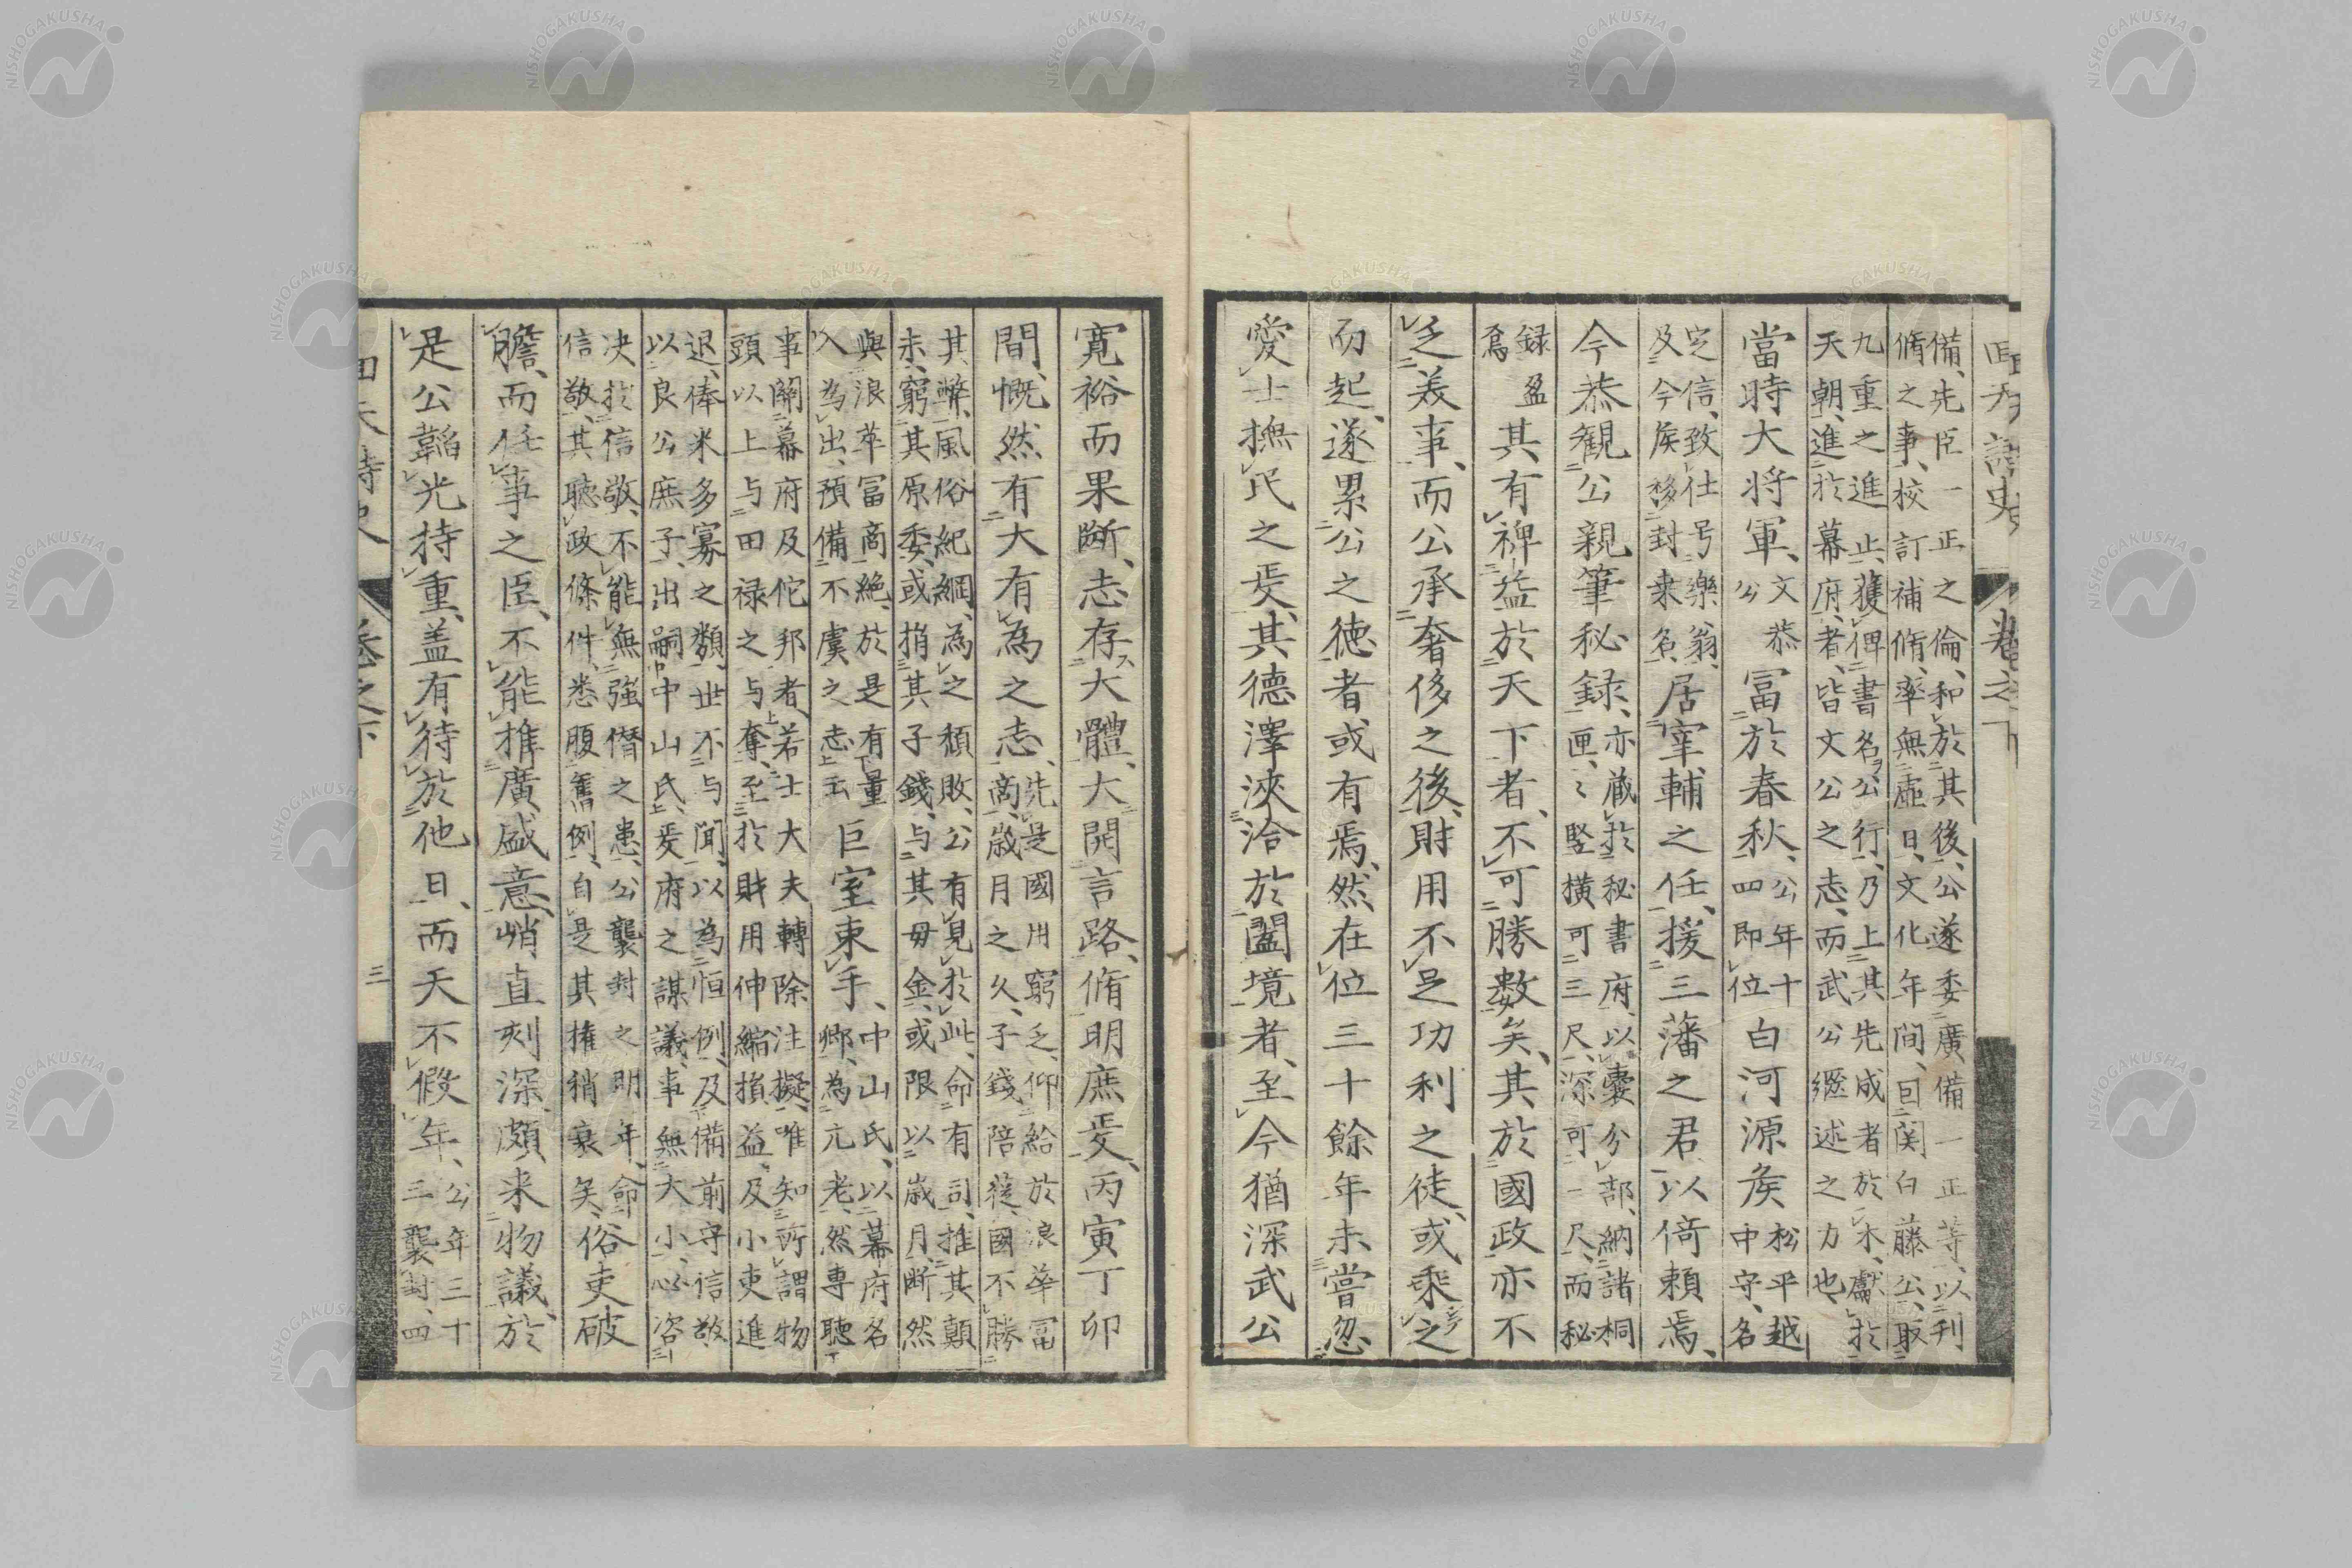 備、先臣一正之倫、和於其後、公遂委廣備一正等、以刋
脩之事、校訂補脩、率無虛日、文化年間、囙関白藤公、取
九重之進止、獲俾書名公行、乃上其先成者於木、獻於
天朝、進於幕府者、皆文公之志、而武公繼述之力也、
當時大将軍、文恭公冨於春秋、公年十四即位白河源矦松平越中守、名
定信、致仕号樂翁、
及今矦移封桒名、居宰輔之任、援三藩之君以倚頼焉、
今恭観公親筆秘録、亦蔵於秘書府、以囊分部、納諸桐匣、〻竪横可三尺、深可一尺、而秘
録盈焉其有裨益於天下者、不可勝數矣、其於國政亦不
乏義事、而公承奢侈之後、財用不足功利之徒、或乘之
而起、遂累公之徳者或有焉、然在位三十餘年未嘗忽
愛士撫民之㕛、其德澤浹洽於闔境者、至今猶深武公
寛裕而果斷、志存大體、大開言路、脩明庶㕛、丙寅丁卯
間、慨然有大有為之志、先是國用窮乏、仰給於浪華冨商、歳月之久、子錢陪蓰、國不勝
其弊、風俗紀綱、為之頽敗、公有見於此、命有司、推其顛
末、窮其原委、或捐其子錢、与其毋金、或限以歳月、断然
與浪華冨商絶、於是有量
入為出、預備不虞之志云巨室束手、中山氏、以幕府名卿、為元老、然専聽
事關幕府及佗邦者、若士大夫轉除注擬、唯知所謂物
頭以上与田禄之与奪、至於財用伸縮損益、及小吏進
退、俸米多寡之類、世不与聞、以為恒例、及備前守信敬
以良公庶子、出嗣中山氏、㕛府之謀議、事無大小、必咨
决於信敬、不能無強僭之患、公襲封之明年、命
信敬、其聽政條件、悉腹舊例、自是其権稍衰矣、俗吏破
膽、而任事之臣、不能推廣盛意、峭直刻深、頗来物議、於
是公韜光持重、盖有待於他日、而天不假年、公年三十三襲封、四
三